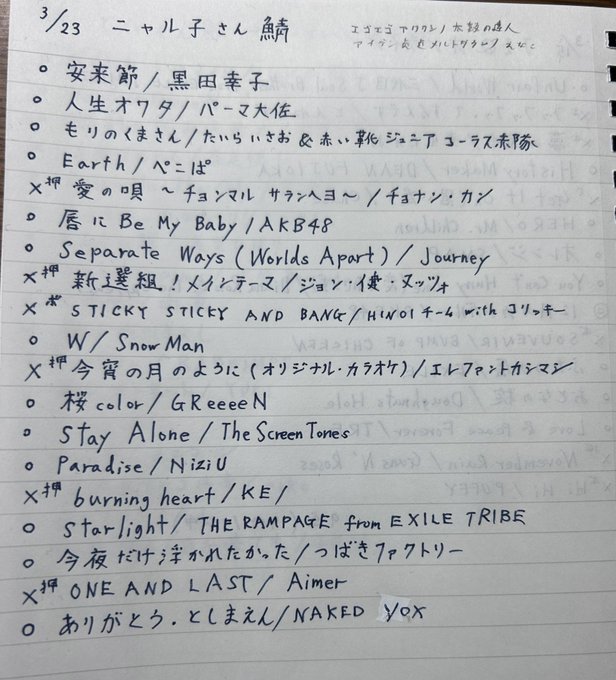 3/23 ニャル子さん 鯖
エゴエゴアワワン/太鼓の達人
○ 安来節/黒田幸子
○ 人生オワタ/パーマ大佐
○ もりのくまさん/たいらいさお&赤い靴ジュニアコーラス赤隊
○ Earth/ぺこぱ
×押 愛の唄 ～チョンマル サランヘヨ～/チョナン・カン
○ 唇にBe My Baby/AKB48
○ Separate Ways (Worlds Apart)/Journey
×押 新選組!メインテーマ/ジョン・健・ヌッツォ
×ボ STICKY STICKY AND BANG/HINOIチーム with コリッキー
○ W/Snow Man
×押 今宵の月のように(オリジナル・カラオケ)/エレファントカシマシ
○ 桜color/GReeeeN
○ Stay Alone/The Screen Tones
○ Paradise/NiziU
×押 burning heart/KE/
○ Starlight/THE RAMPAGE from EXILE TRIBE
○ 今夜だけ浮かれたかった/つばきファクトリー
×押 ONE AND LAST/Aimer
○ ありがとう.としまえん/NAKED VOX